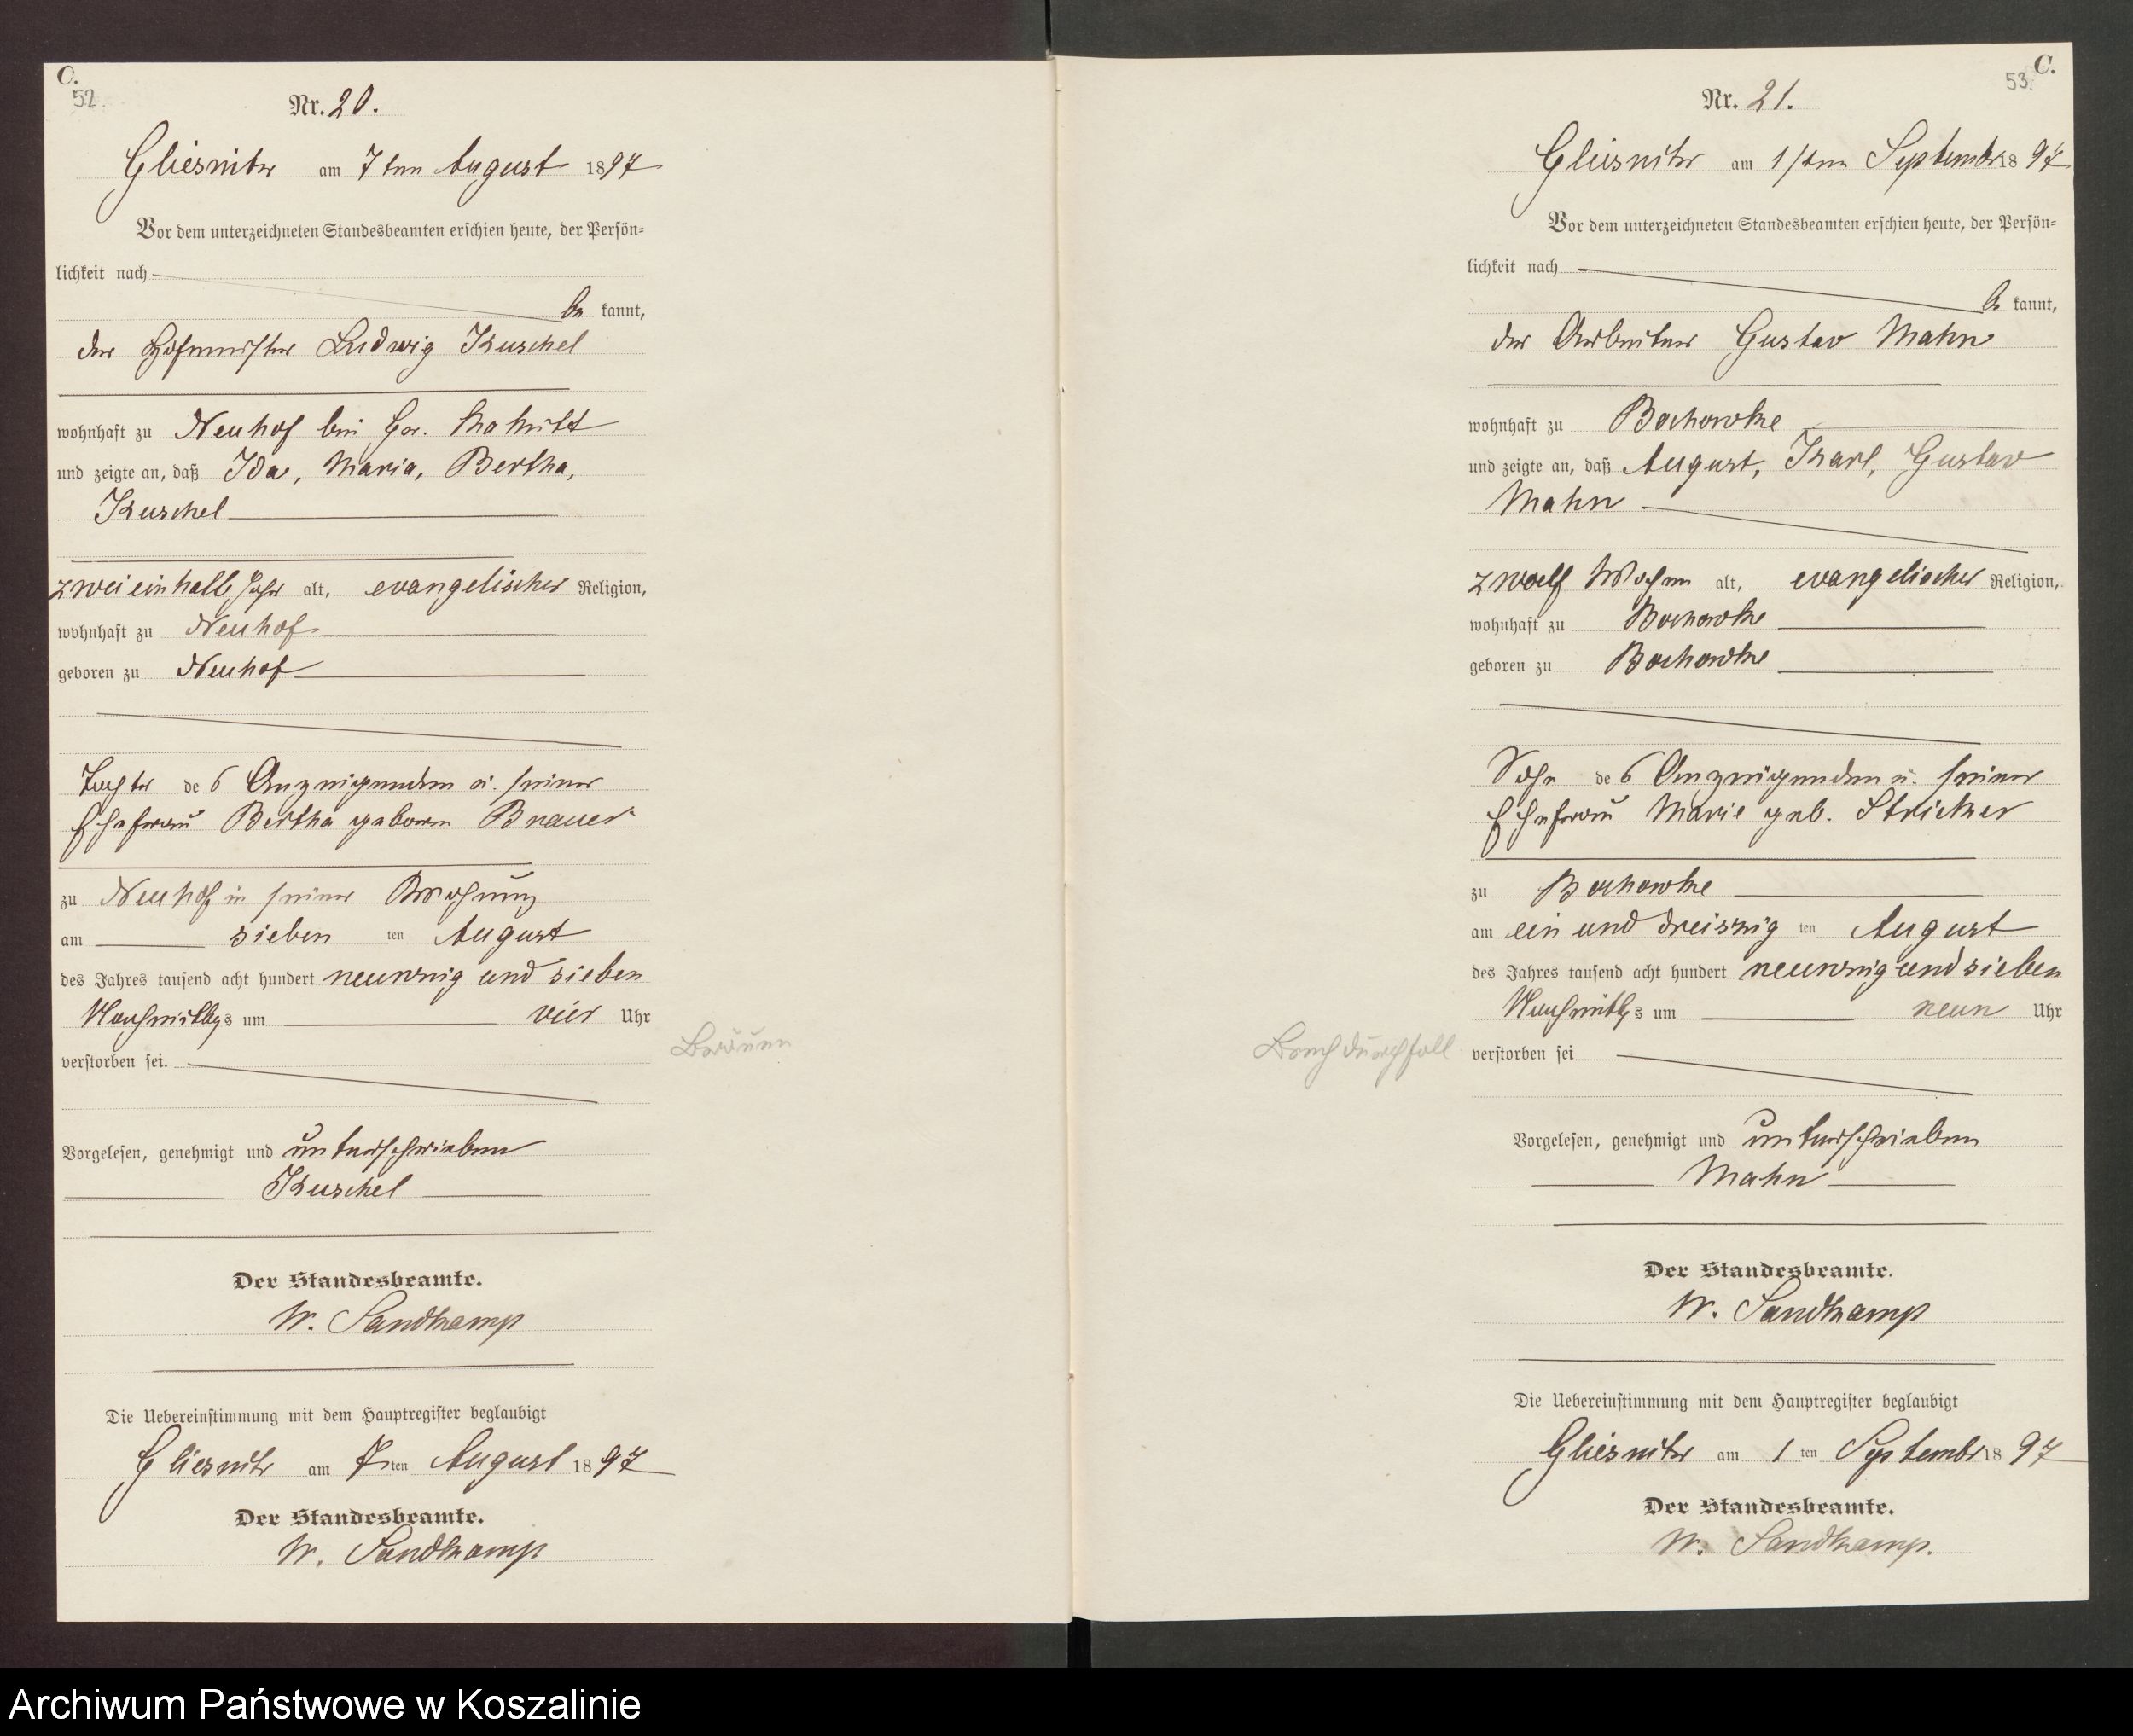 C.
52.
Nr. 20.
Gliesnitz am 7ten August 1897
Vor dem unterzeichneten Standesbeamten erschien heute, der Persön-
lichkeit nach
be kannt,
der Hofmeister Ludwig Kuschel
wohnhaft zu Neuhof bei Gr.
und zeigte an, daß Ida, Maria, Bertha,
Kuschel
zweieinhalb Jahr alt, evangelischer Religion,
wohnhaft zu Neuhof
geboren zu Neuhof
Tochter des Anzeigenden u. seiner
Ehefrau Bertha geboren
zu Neuhof in seiner Wohnung
am sieben ten August
des Jahres tausend acht hundert neunzig und sieben
Nachmittags um vier Uhr
verstorben sei.
Bräune
Vorgelesen, genehmigt und unterschrieben
Kuschel
Der Standesbeamte.
W. Sandkamp
Die Uebereinstimmung mit dem Hauptregister beglaubigt
Gliesnitz am 7ten August 1897
Der Standesbeamte.
W. Sandkamp
C.
53.
Nr. 21.
Gliesnitz am 1sten Septembr 1897
Vor dem unterzeichneten Standesbeamten erschien heute, der Persön-
lichkeit nach
be kannt,
der Arbeiter Gustav Mahn
wohnhaft zu Bochowke
und zeigte an, daß August, Karl, Gustav
Mahn
zwoelf Wochen alt, evangelischer Religion,
wohnhaft zu Bochowke
geboren zu Bochowke
Sohn des Anzeigenden u. seiner
Ehefrau Marie geb. Stricker
zu Bochowke
am ein und dreiszig ten August
des Jahres tausend acht hundert neunzig und sieben
Nachmittgs um neun Uhr
verstorben sei
Brechdurchfall
Vorgelesen, genehmigt und unterschrieben
Mahn
Der Standesbeamte.
W. Sandkamp
Die Uebereinstimmung mit dem Hauptregister beglaubigt
Gliesnitz am 1 ten Septembr 1897
Der Standesbeamte.
W. Sandkamp.
Archiwum Państwowe w Koszalinie